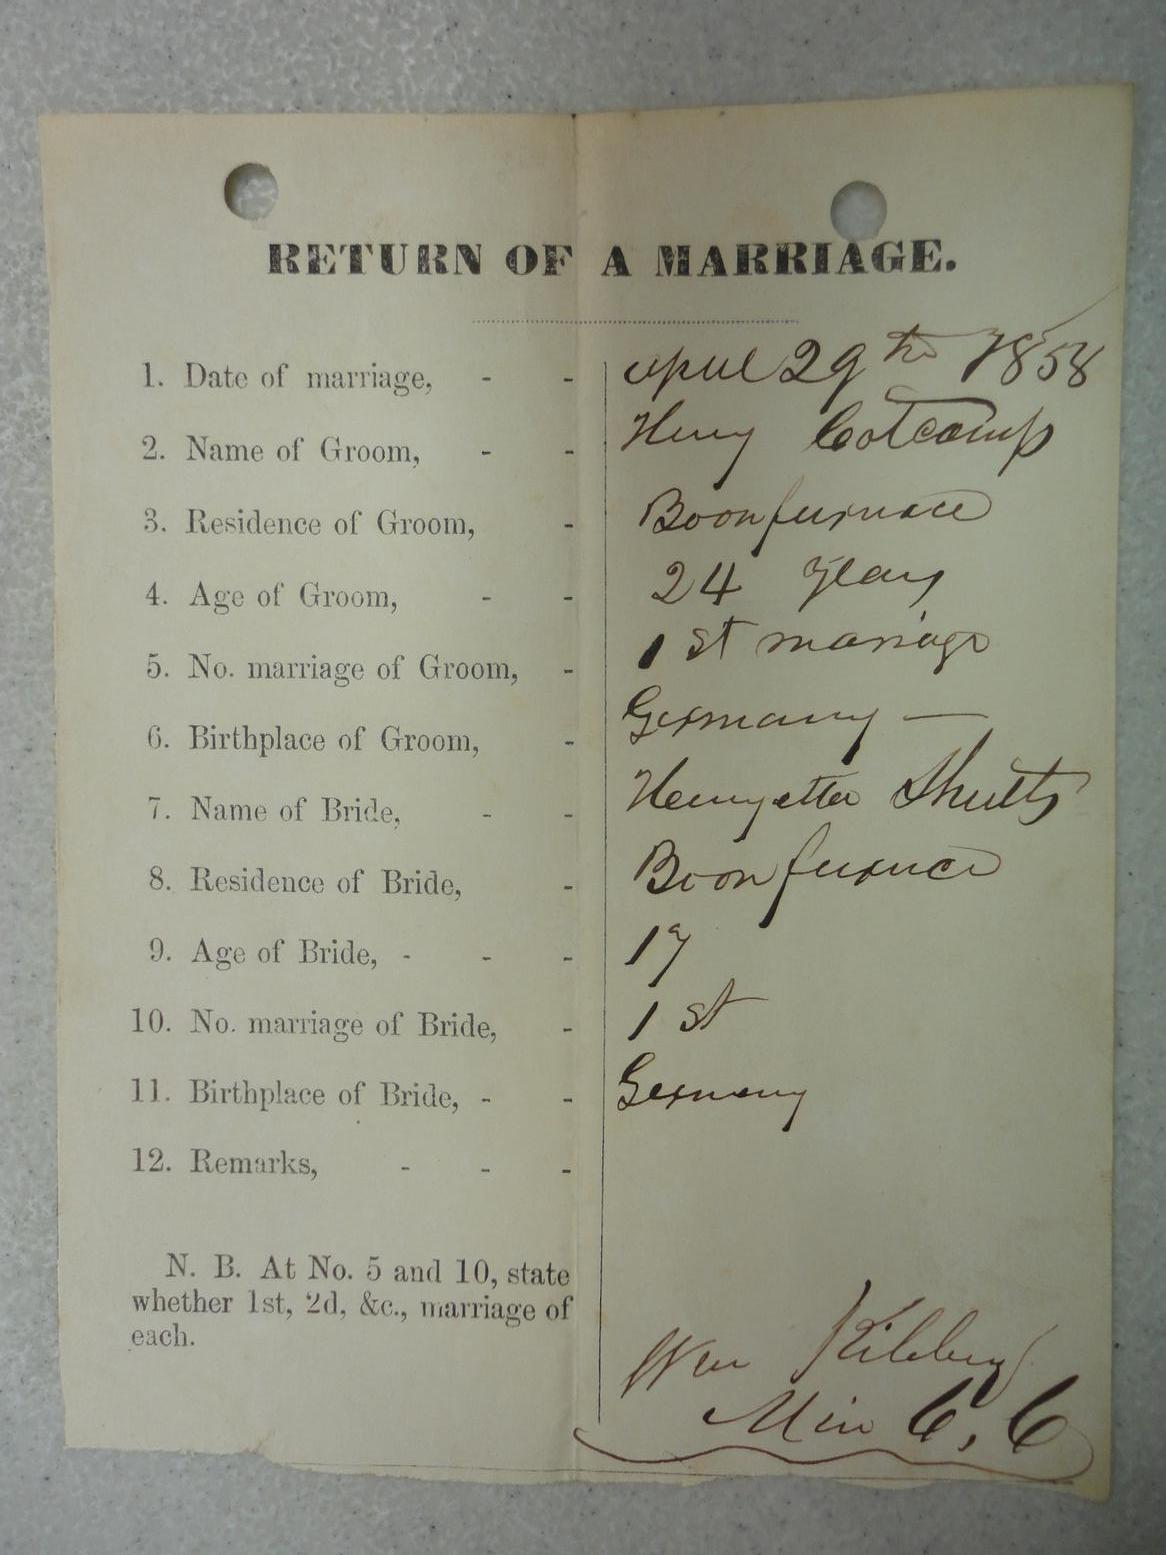 RETURN OF A MARRIAGE.
1. Date of marriage, - - april 29th 1858
2. Name of Groom, - - Henry Cotcamp
3. Residence of Groom, - Boon furnace
4. Age of Groom, - - 24 years
5. No. marriage of Groom, - 1st marriage
6. Birthplace of Groom, - Germany —
7. Name of Bride, - - Henryetta Shults
8. Residence of Bride, - Boon furnace
9. Age of Bride, - - - 17
10. No. marriage of Bride, - 1st
11. Birthplace of Bride, - - Germany
12. Remarks, - - -
N. B. At No. 5 and 10, state
whether 1st, 2d, &c., marriage of
each.
Wm Kibbey
Min C, C